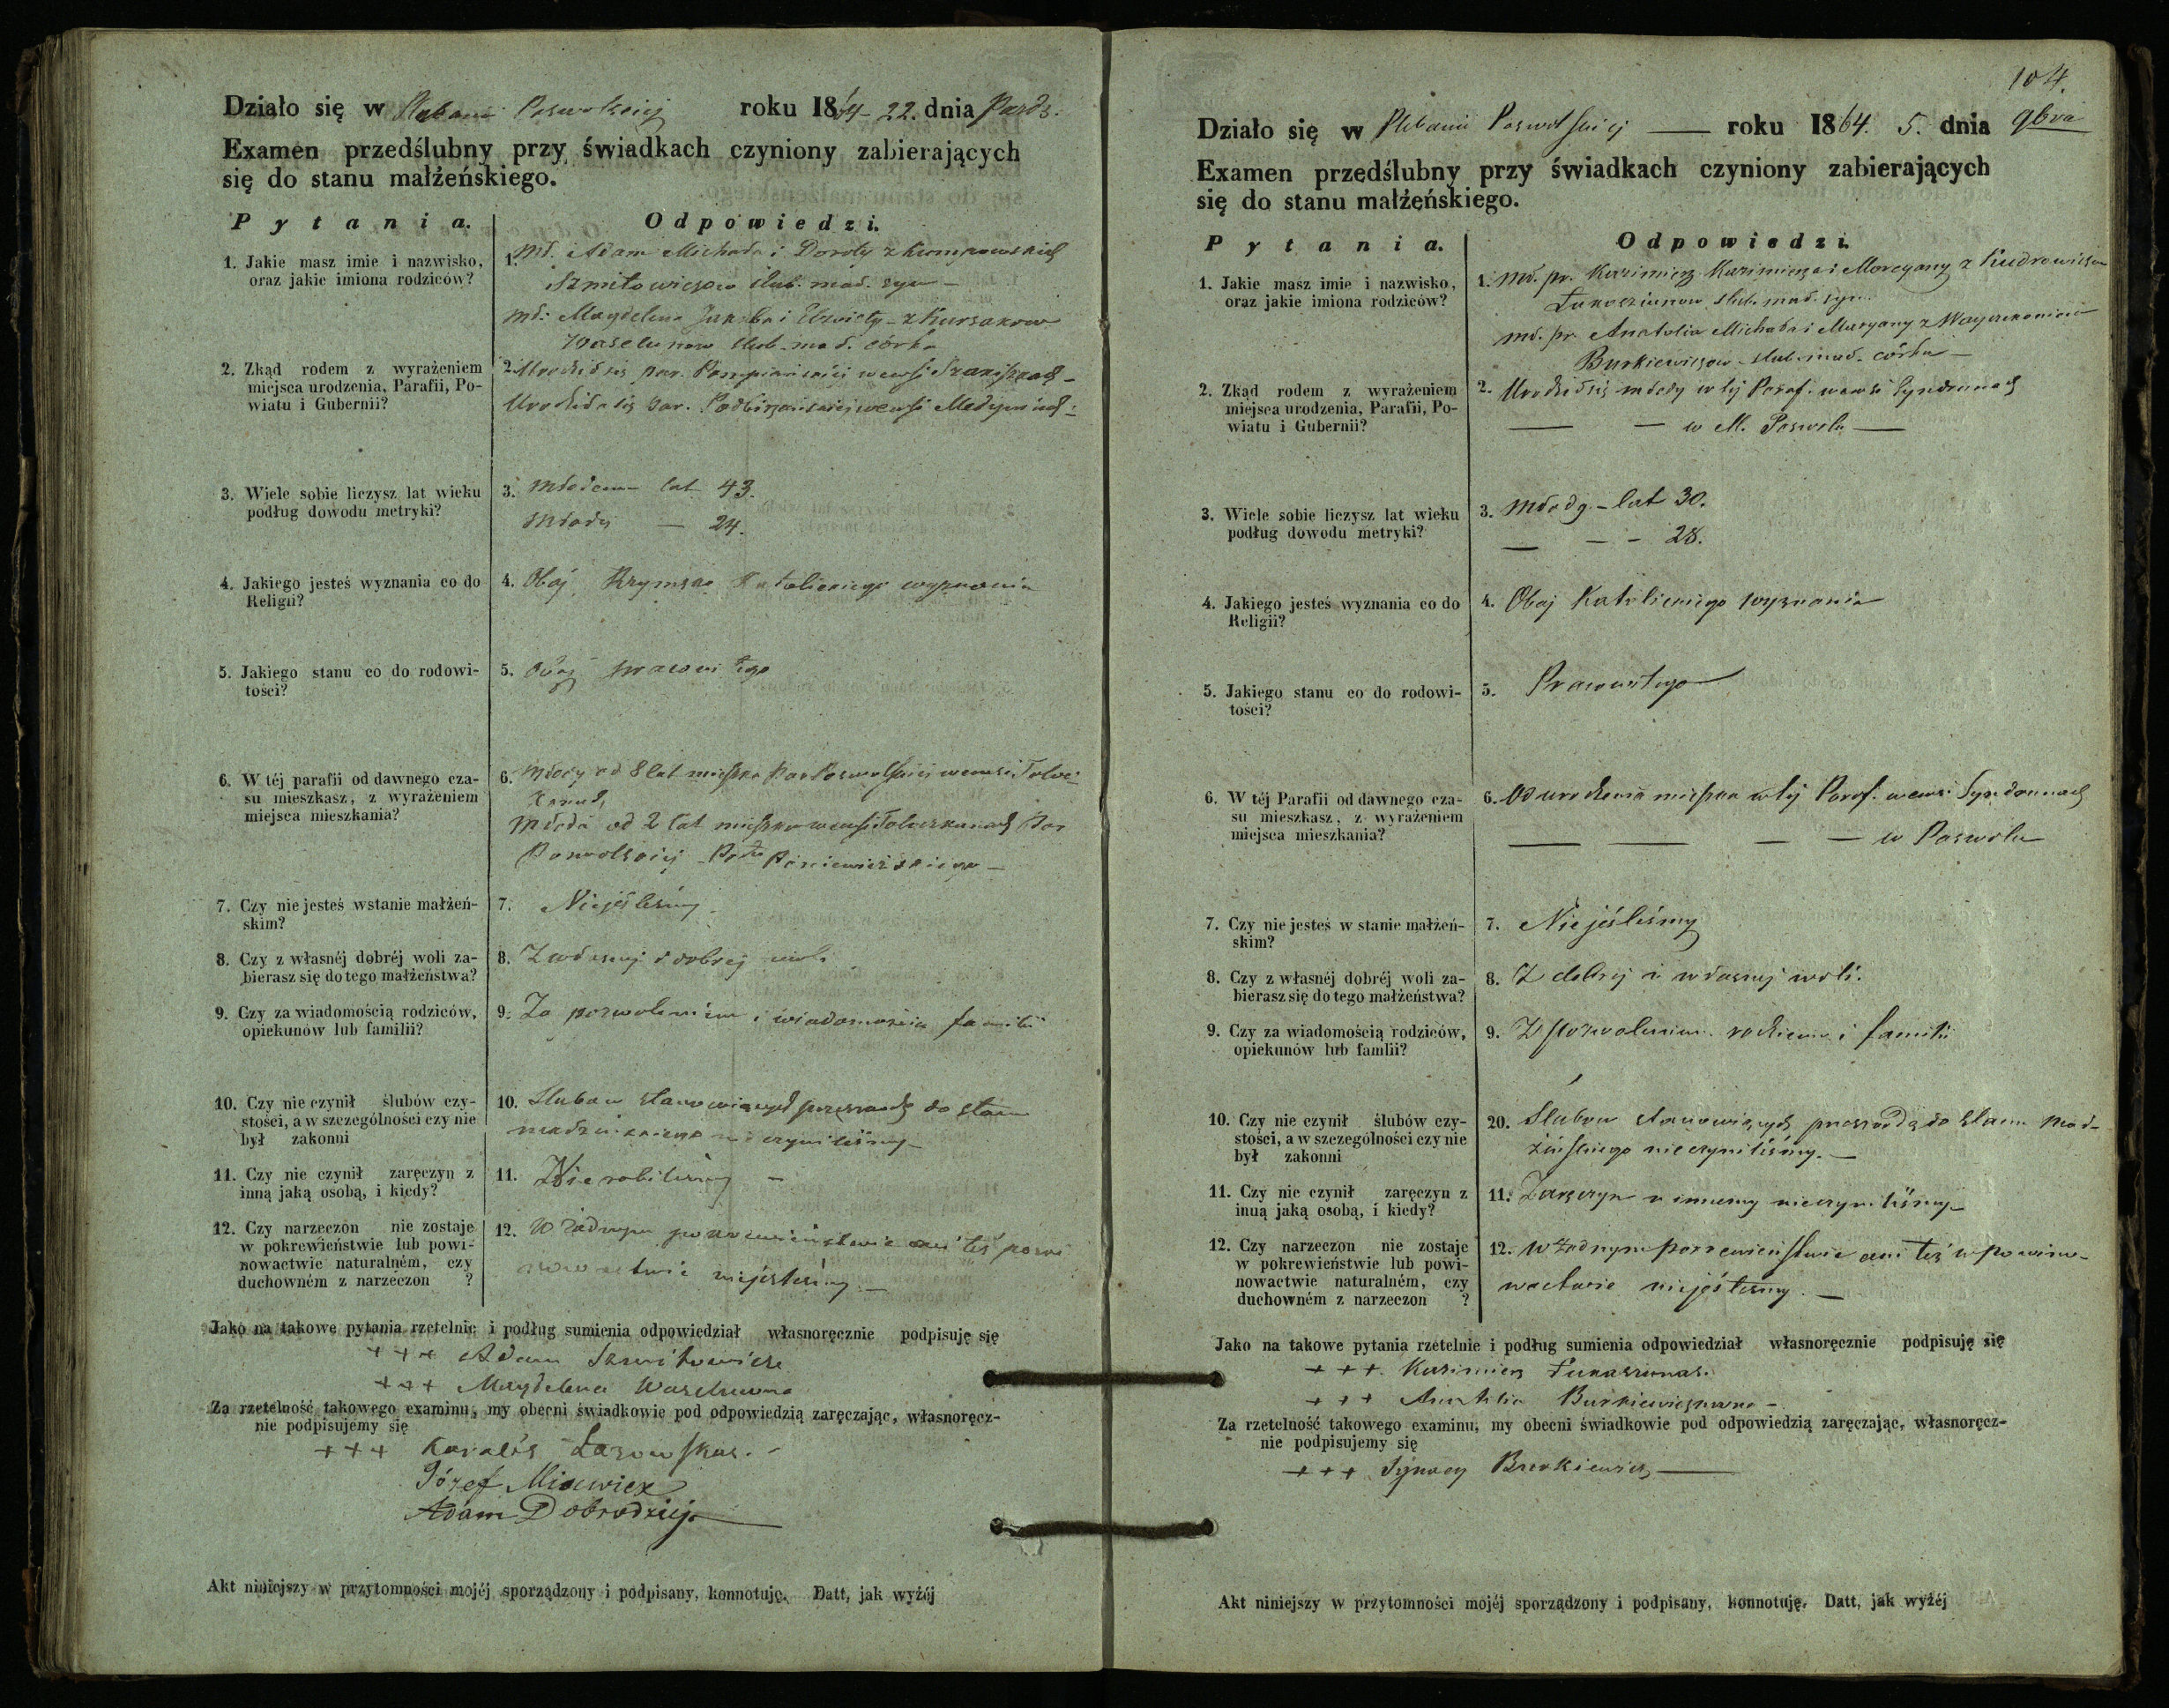 Działo się w Plebanii Poswolskiej roku 1864 - 22. dnia Paźdz.
Examen przedślubny przy świadkach czyniony zabierających
się do stanu małżeńskiego.
Pytania. Odpowiedzi.
1. Jakie masz imie i nazwisko,
oraz jakie imiona rodziców?
1. Mł. Adam Michała i Doroty z
Szmitowiczow ślub. mał. syn -
Mł: Magdelena Jakuba i Elżbiety - z Kursakow
Waselunow ślub. mał. córka
2. Zkąd rodem z wyrażeniem
miejsca urodzenia, Parafii, Po-
wiatu i Gubernii?
2. Urodził się par. Pompiańskiej wewsi
Urodziła się par. Podbirżańskiej wewsi
3. Wiele sobie liczysz lat wieku
podług dowodu metryki?
3. Młodemu lat 43.
Młodej — 24.
4. Jakiego jesteś wyznania co do
Religii?
4. Obaj Rzymsko Katolickiego wyznania
5. Jakiego stanu co do rodowi-
tości?
5. Obaj prawowitego
6. W téj parafii od dawnego cza-
su mieszkasz, z wyrażeniem
miejsca mieszkania?
6. Młody od 8 lat mieszka Par Poswolskiej wewsi
Młoda od 2 lat mieszka wewsi Par
Poswolskiej - Ptu Poniewieżskiego -
7. Czy nie jesteś wstanie małżeń-
skim?
7. Niejesteśmy
8. Czy z własnéj dobréj woli za-
bierasz się do tego małżeństwa?
8. Z własnej i dobrej woli
9. Czy za wiadomością rodziców,
opiekunów lub familii?
9. Za pozwoleniem i wiadomością familii
10. Czy nie czynił ślubów czy-
stości, a w szczególności czy nie
był zakonni
10. Slubow stanowiących przeszkodę do stanu
małżeńskiego nie czyniliśmy
11. Czy nie czynił zaręczyn z
inną jaką osobą, i kiedy?
11. Nie robiliśmy -
12. Czy narzeczon nie zostaje
w pokrewieństwie lub powi-
nowactwie naturalném, czy
duchowném z narzeczon ?
12. W żadnym pokrewieństwie ani też powi
nowactwie niejesteśmy. -
Jako na takowe pytania rzetelnie i podług sumienia odpowiedział własnoręcznie podpisuję się
+++ Adam Szmitowicz
+++ Magdelena Waselunna
Za rzetelność takowego examinu, my obecni świadkowie pod odpowiedzią zaręczając, własnoręcz-
nie podpisujemy się
+++ Karalis Łazowskas. -
Józef Micewicz
Adam Dobrodziej
Akt niniejszy w przytomności mojéj sporządzony i podpisany, konnotuję. Datt, jak wyżéj
104.
Działo się w Plebanii Poswolskiej — roku 1864. 5. dnia 9bra
Examen przedślubny przy świadkach czyniony zabierających
się do stanu małżeńskiego.
Pytania. Odpowiedzi.
1. Jakie masz imie i nazwisko,
oraz jakie imiona rodziców?
1. Mł. pr. Kazimierz Kazimierza i Maryanny z Kudrowiczow
Łukoszunow ślub. mał. syn.
mł. pr. Anatolia Michała i Maryanny z
Burkiewiczow - ślub. mał. córka -
2. Zkąd rodem z wyrażeniem
miejsca urodzenia, Parafii, Po-
wiatu i Gubernii?
2. Urodził się młody w tej Paraf. wewsi Gyndrunach
— — w M. Poswolu —
3. Wiele sobie liczysz lat wieku
podług dowodu metryki?
3. Młody - lat 30.
— - - 28.
4. Jakiego jesteś wyznania co do
Religii?
4. Obaj Katolickiego wyznania
5. Jakiego stanu co do rodowi-
tości?
5. Prawowitego
6. W téj Parafii od dawnego cza-
su mieszkasz, z wyrażeniem
miejsca mieszkania?
6. Od urodzenia mieszka w tej Paraf. wewsi Gyndrunach
— — — — w Poswolu
7. Czy nie jesteś w stanie małżeń-
skim?
7. Nie jesteśmy
8. Czy z własnéj dobréj woli za-
bierasz się do tego małżeństwa?
8. Z dobrej i własnej woli.
9. Czy za wiadomością rodziców,
opiekunów lub famlii?
9. Z pozwoleniem rodzicow i familii
10. Czy nie czynił ślubów czy-
stości, a w szczególności czy nie
był zakonni
20. Slubow stanowiących przeszkodę do stanu mał-
żeńskiego nie czyniliśmy. —
11. Czy nie czynił zaręczyn z
inuą jaką osobą, i kiedy?
11. Zaręczyn z innemy nieczyniliśmy -
12. Czy narzeczon nie zostaje
w pokrewieństwie lub powi-
nowactwie naturalném, czy
duchowném z narzeczon ?
12. W żadnym pokrewieństwie ani też w powino-
wactwie niejesteśmy. —
Jako na takowe pytania rzetelnie i podług sumienia odpowiedział własnoręcznie podpisuję się
+++. Kazimierz Łukaszunas.
+++ Anatolia Burkiewiczuwna -
Za rzetelność takowego examinu, my obecni świadkowie pod odpowiedzią zaręczając, własnoręcz-
nie podpisujemy się
+++ Ignacy Burkiewicz —
Akt niniejszy w przytomności mojéj sporządzony i podpisany, konnotuję. Datt, jak wyżéj